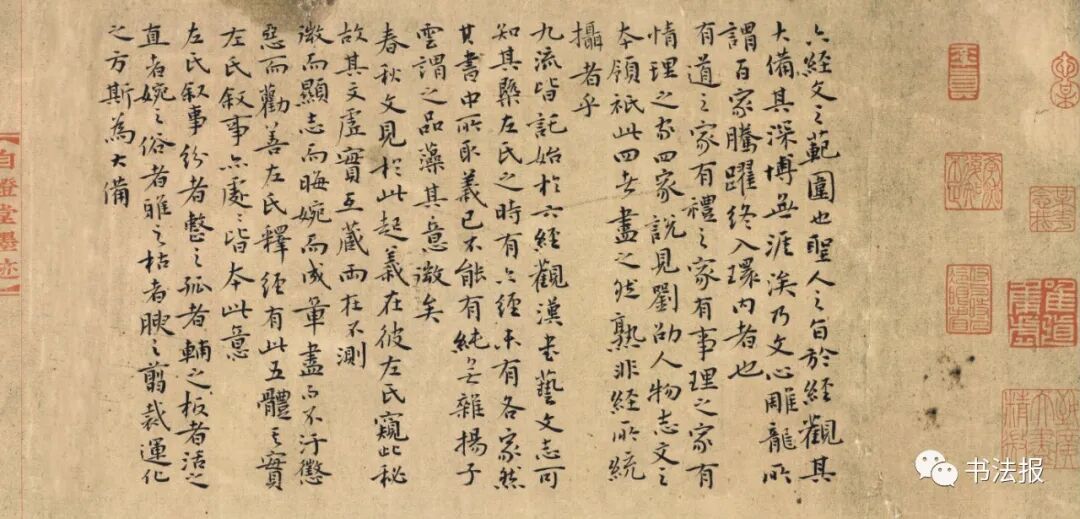 六經文之範圍也聖人之旨於經觀其
大備其深博無涯涘乃文心雕龍所
謂百家騰躍終入環內者也
有道之家有禮之家有事理之家有
情理之家四家說見劉劭人物志文之
本領祇此四者盡之然熟非經所統
攝者乎
九流皆託始於六經觀漢書藝文志可
知其槩左氏之時有六經未有各家然
其書中所取義已不能有純無雜揚子
雲謂之品藻其意微矣
春秋文見於此起義在彼左氏窺此秘
故其文虛實互藏兩在不測
微而顯志而晦婉而成章盡而不汙懲
惡而勸善左氏釋經有此五體其實
左氏叙事亦處〻皆本此意
左氏叙事紛者整之孤者輔之板者活之
直者婉之俗者雅之枯者腴之翦裁運化
之方斯為大備
【自證堂墨迹】
书法报